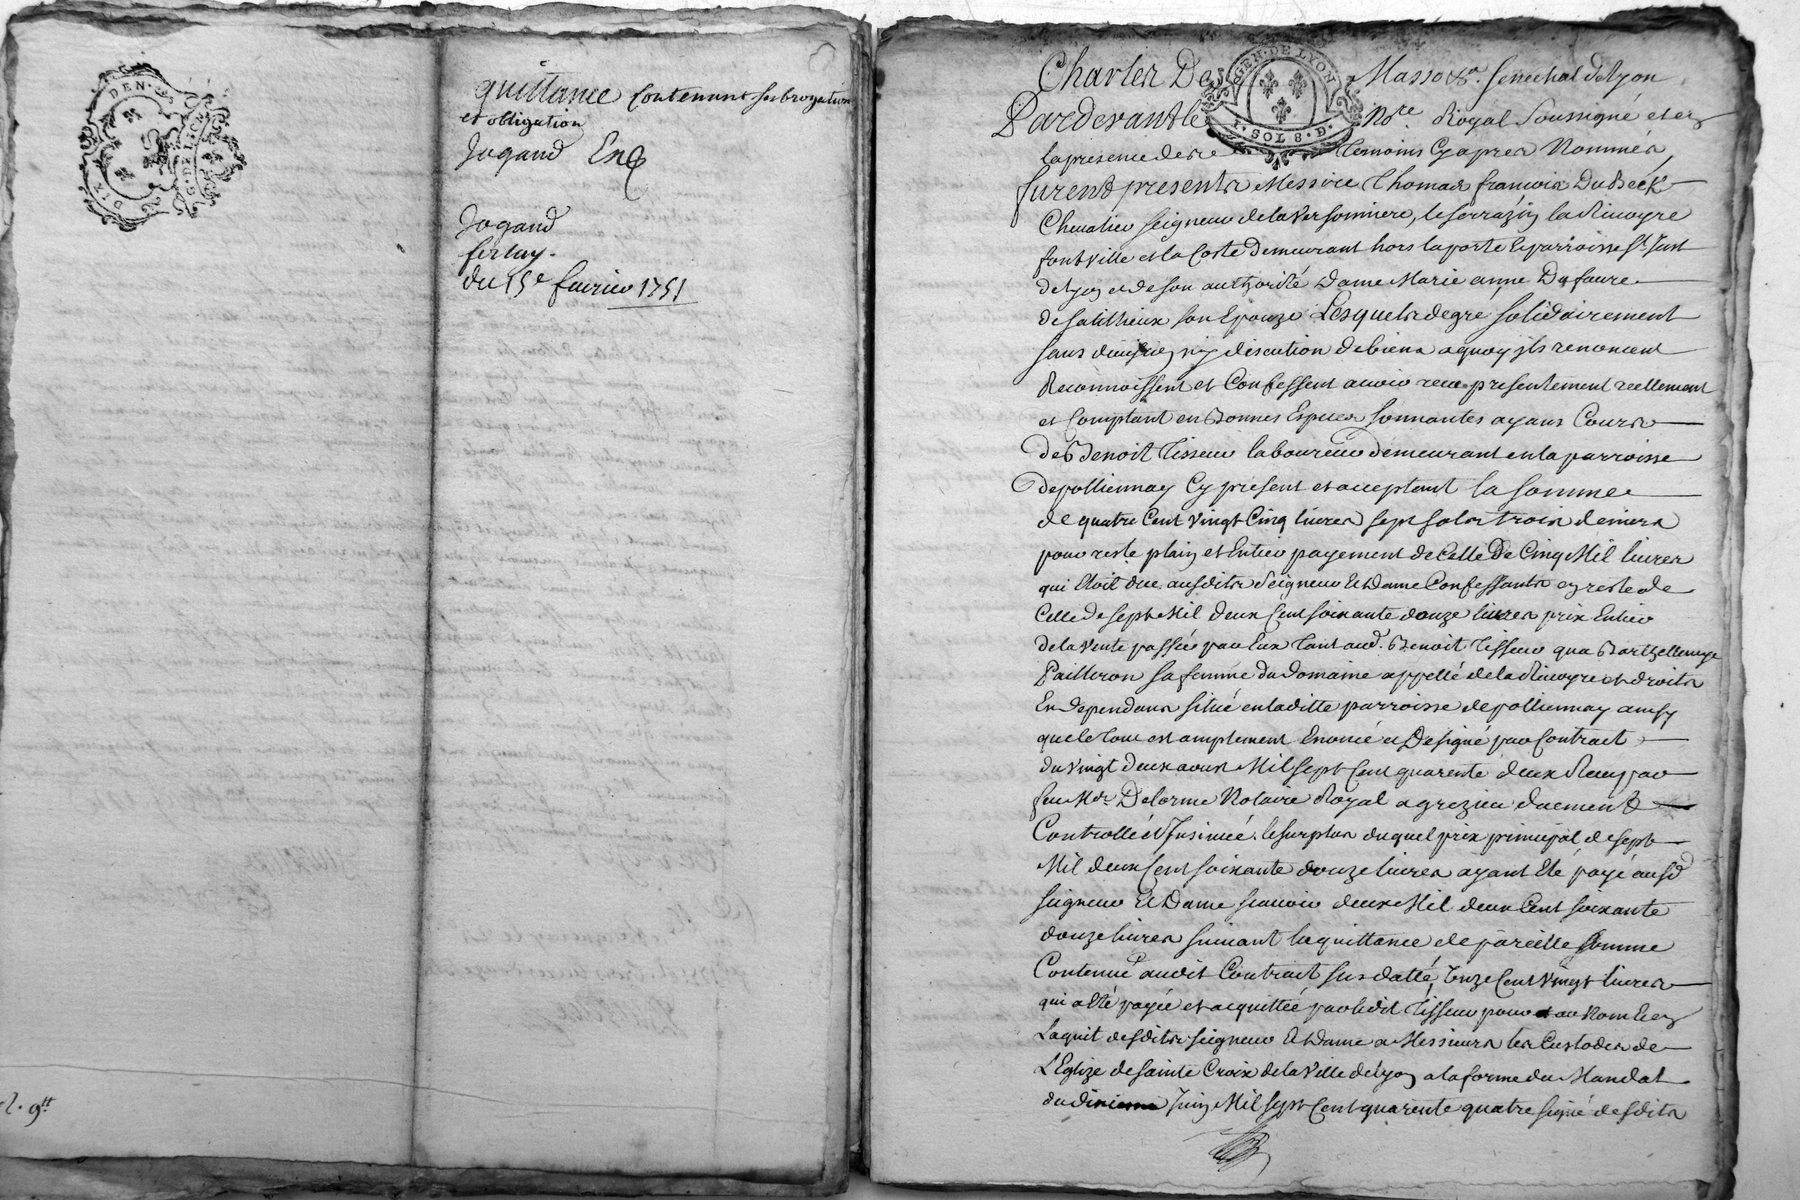 DIX DEN.
G. DE LION
quittance Contenant subrogation
et obligation
Jogand
Jogand
ferlay.
du 15e. fevrier 1751
2. 9tt
GEN. DE LYON
1. SOLS. D.
Charles De Masso &c. senechal de lyon
Pardevant le Nore. Royal Soussigné et en
la presence de temoins Cy apres Nommés
furent presents Messire Thomas francois DuBeck
Chevalier seigneur de la Versonniere, le serrazin la Rivoyre
fontville et la Coste demeurant hors la porte & parroisse St. Just
de lyon et de son authorité Dame Marie anne Dufaure
de salithieux son Epouze Lesquels de gré solidairement
sans division ny discution de biens a quoy ils renoncent
Reconnoissent et Confessent avoir receu presentement reellement
et Comptant en Bonnes Especes sonnantes ayans Cours
de Benoit Tisseur laboureur demeurant en la parroisse
de pollionnay Cy present et acceptant la somme
de quatre Cent vingt Cinq livres sept sols trois deniers
pour reste plain et Entier payement de Celle De Cinq Mil livres
qui Etoit due ausdits Seigneur Et Dame Confessants en reste de
Celle de sept Mil deux Cent soixante douze livres prix Entier
de la vente passée par Eux Tant aud. Benoit Tisseur qua Barthellemye
Pailleron sa femme du domaine appellé de la Rivoyre et droits
En dependans situé en laditte parroisse de pollionnay ainsy
que le Tout est amplement Enoncé et Designé par Contract
du vingt deux aoust Mil sept Cent quarente deux Receu par
feu Me. Delorme Notaire Royal a grezieu duement
Controllé et Insinué. le surplus duquel prix principal de sept
Mil deux Cent soixante douze livres ayant Eté payé ausd
seigneur Et Dame scavoir deux Mil deux Cent soixante
douze livres suivant la quittance de pareille somme
Contenue audit Contract sus datté, onze Cent vingt livres
qui a Eté payée et acquittée par ledit Tisseur pour et au Nom Et en
Laquit desdits seigneur Et Dame a Messieurs les Custodes de
L'Eglize de Sainte Croix de la Ville de lyon a la forme du Mandat
du dixieme Juin Mil sept Cent quarente quatre signé desdits